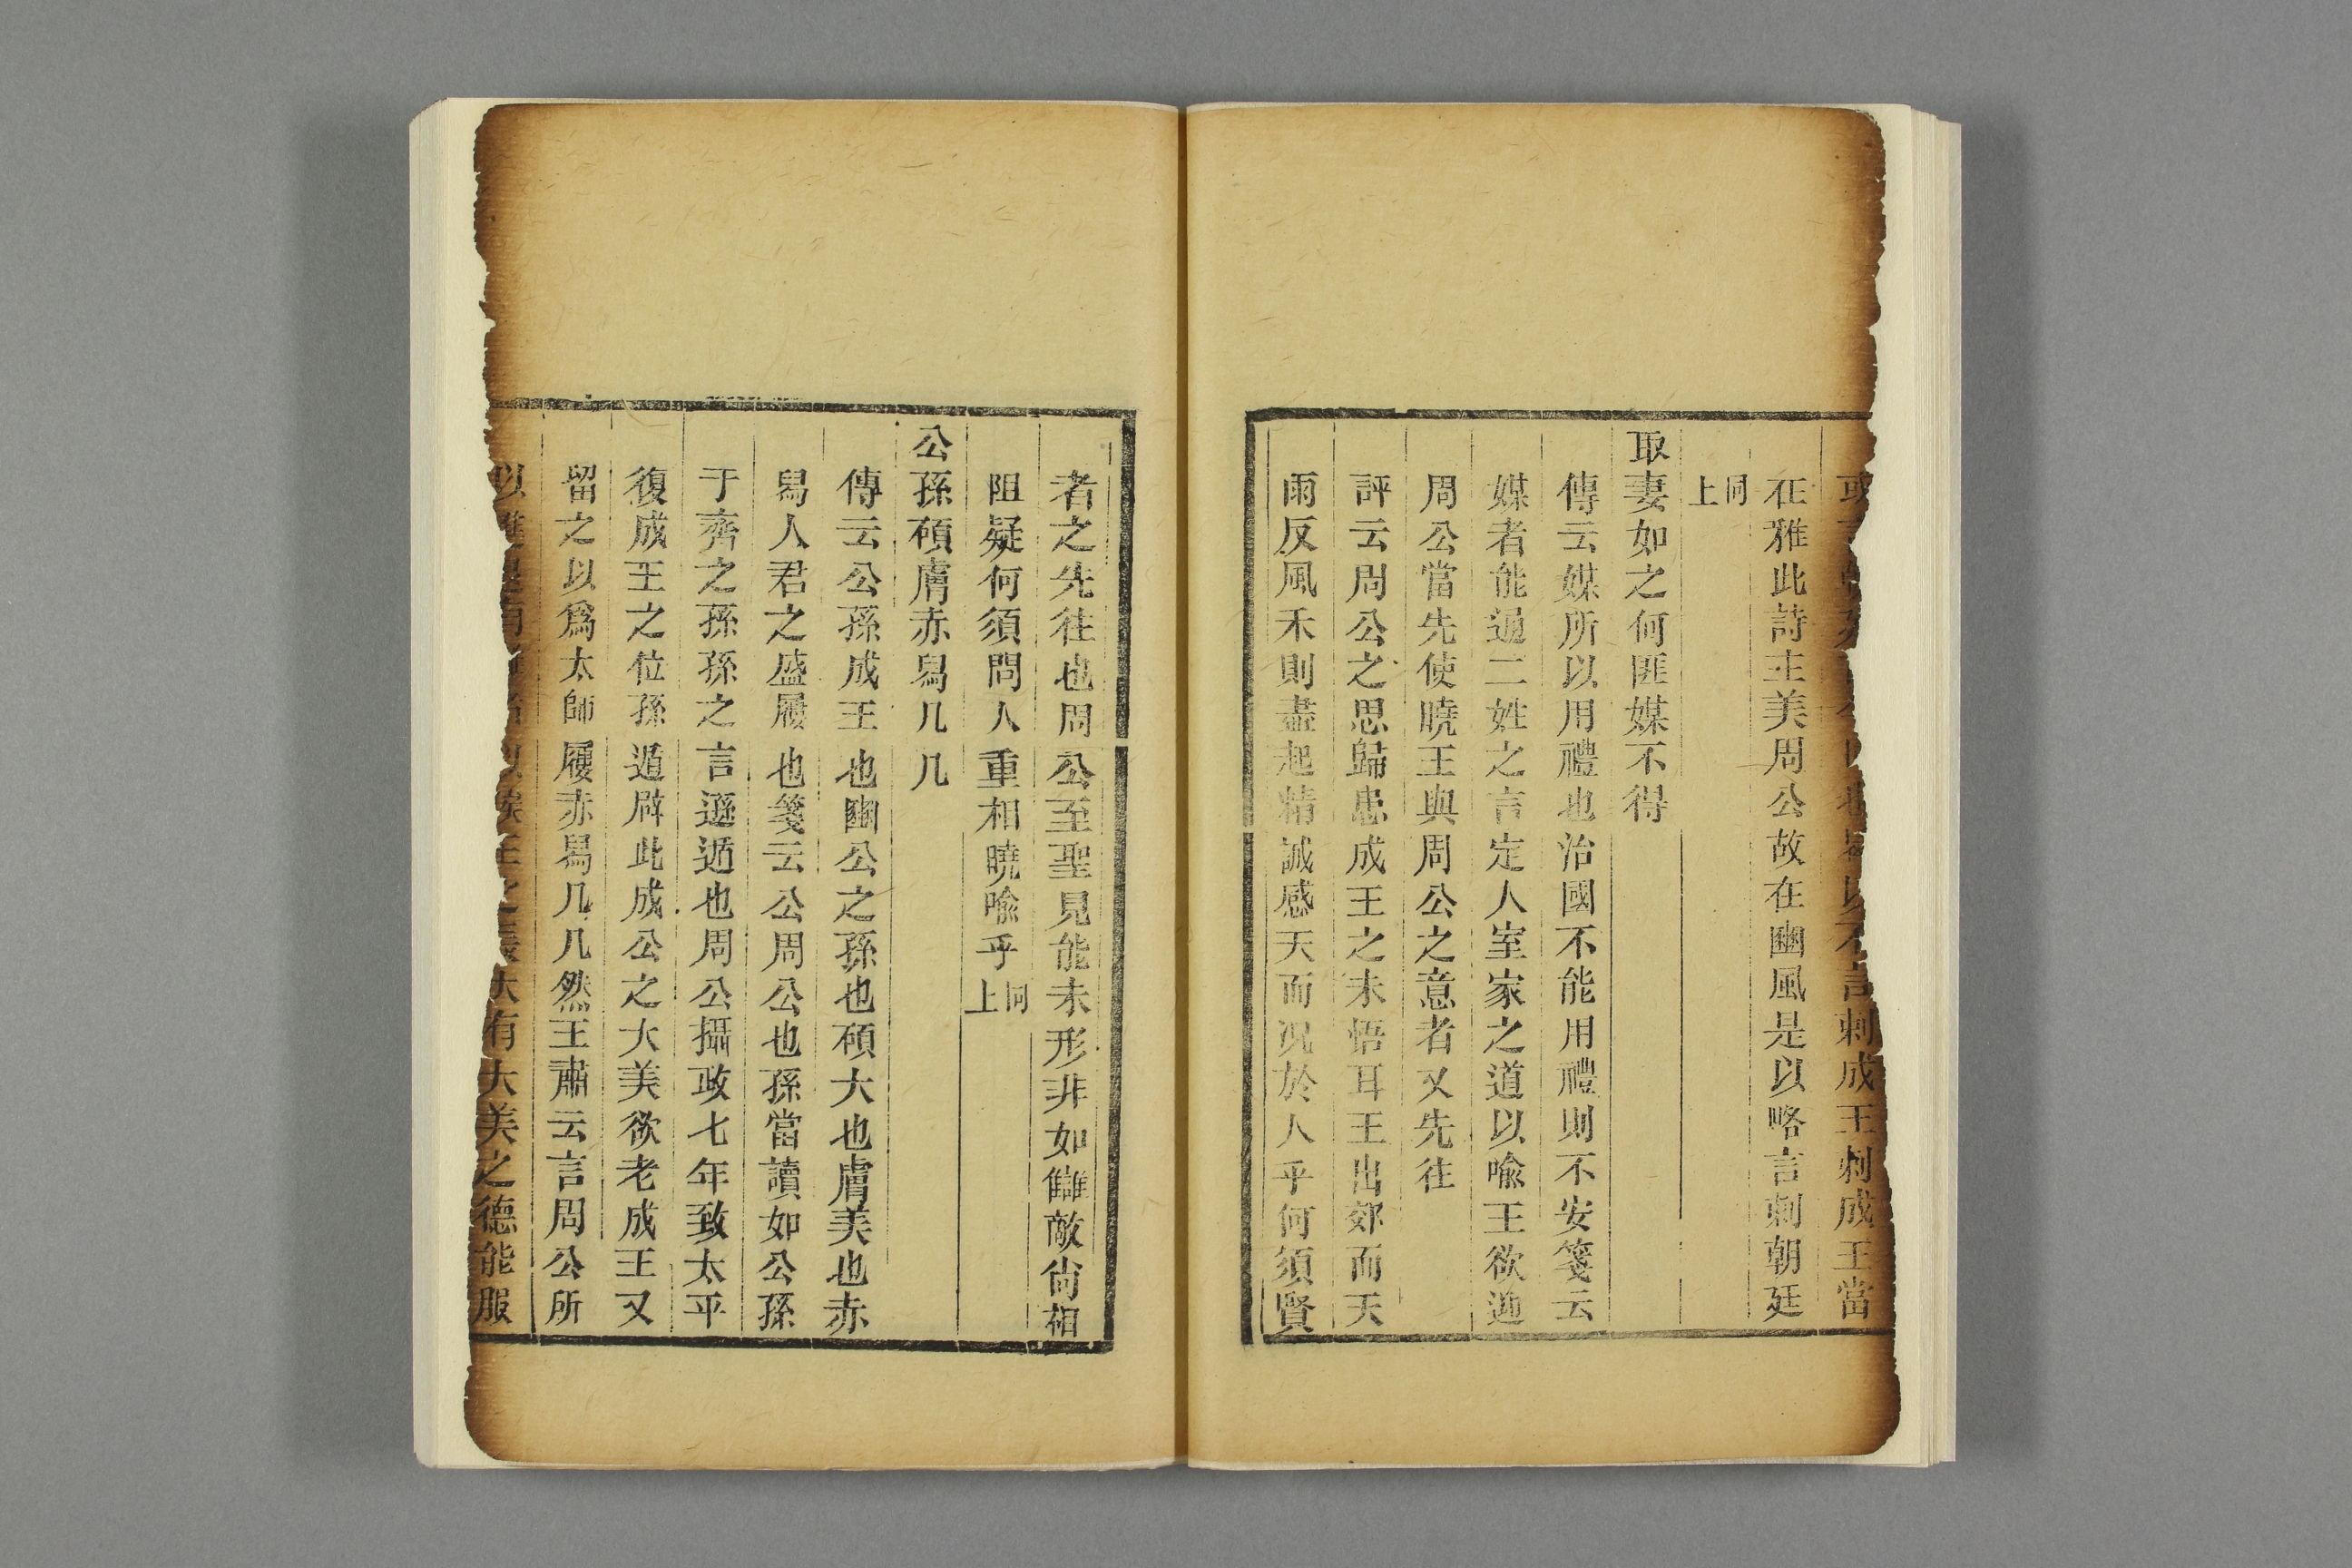 言刺成王刺成王當
在雅此詩主美周公故在豳風是以略言刺朝廷
同上
取妻如之何匪媒不得
傳云媒所以用禮也治國不能用禮則不安箋云
媒者能通二姓之言定人室家之道以喻王欲迎
周公當先使曉王與周公之意者又先往
評云周公之思歸患成王之未悟耳王出郊而天
雨反風禾則盡起精誠感天而况於人乎何須賢
者之先往也周公至聖見能未形非如讎敵尙相
阻疑何須問人重相曉喻乎同上
公孫碩膚赤舄几几
傳云公孫成王也豳公之孫也碩大也膚美也赤
舄人君之盛屨也箋云公周公也孫當讀如公孫
于齊之孫孫之言遜遁也周公攝政七年致太平
復成王之位孫遁辟此成公之大美欲老成王又
留之以爲太師屨赤舄几几然王肅云言周公所
以 大有大美之德能服